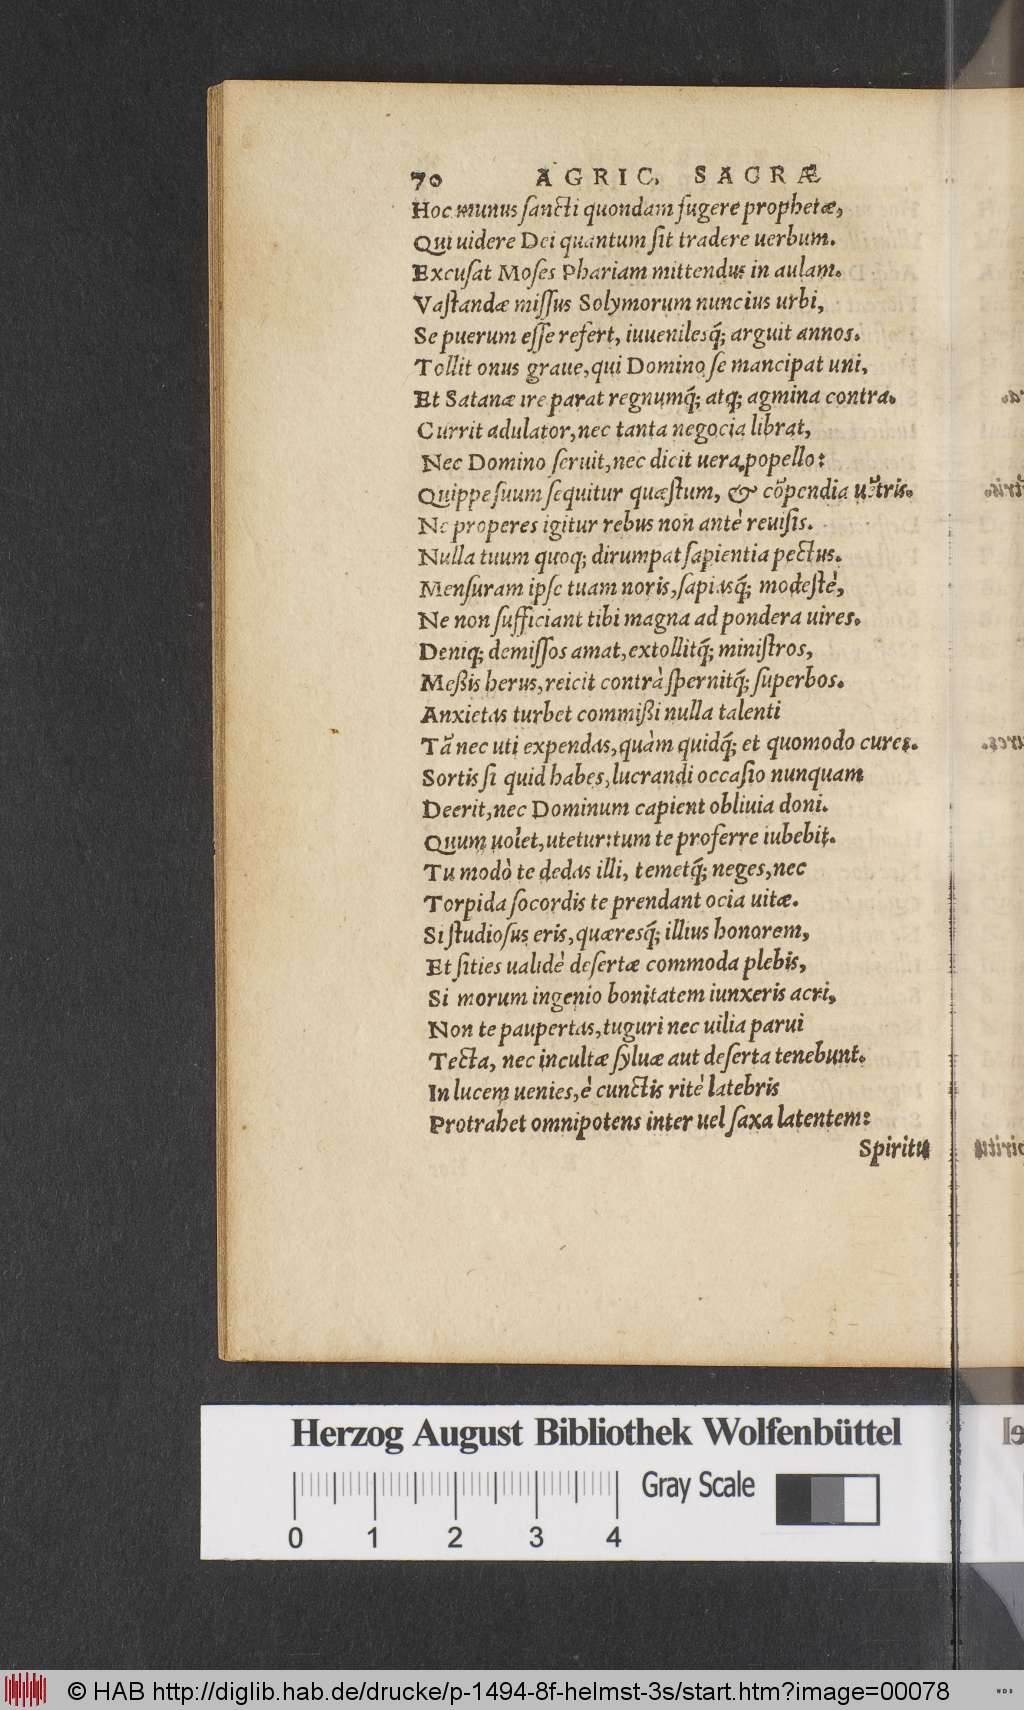 70 AGRIC. SACRÆ
Hoc munus ſancti quondam fugere prophetæ,
Qui uidere Dei quantum ſit tradere uerbum.
Excuſat Moſes Phariam mittendus in aulam.
Vaſtandæ miſſus Solymorum nuncius urbi,
Se puerum eſſe refert, iuuenilesq́; arguit annos.
Tollit onus graue, qui Domino ſe mancipat uni,
Et Satanæ ire parat regnumq́; atq; agmina contra.
Currit adulator, nec tanta negocia librat,
Nec Domino ſeruit, nec dicit uera popello:
Quippe ſuum ſequitur quæſtum, & cõpendia uẽtris.
Ne properes igitur rebus non antè reuiſis.
Nulla tuum quoq; dirumpat ſapientia pectus.
Menſuram ipſe tuam noris, ſapiasq́; modeſtè,
Ne non ſufficiant tibi magna ad pondera uires.
Deniq; demiſſos amat, extollitq́; miniſtros,
Meßis herus, reicit contrà ſpernitq́; ſuperbos.
Anxietas turbet commißi nulla talenti
Tã nec uti expendas, quàm quidq́; et quomodo cures.
Sortis ſi quid habes, lucrandi occaſio nunquam
Deerit, nec Dominum capient obliuia doni.
Quum uolet, utetur: tum te proferre iubebit.
Tu modò te dedas illi, temetq́; neges, nec
Torpida ſocordis te prendant ocia uitæ.
Si ſtudioſus eris, quæresq́; illius honorem,
Et ſities ualidè deſertæ commoda plebis,
Si morum ingenio bonitatem iunxeris acri,
Non te paupertas, tuguri nec uilia parui
Tecta, nec incultæ ſyluæ aut deſerta tenebunt.
In lucem uenies, è cunctis ritè latebris
Protrahet omnipotens inter uel ſaxa latentem:
Spiritu
Herzog August Bibliothek Wolfenbüttel
Gray Scale
0 1 2 3 4
© HAB http://diglib.hab.de/drucke/p-1494-8f-helmst-3s/start.htm?image=00078